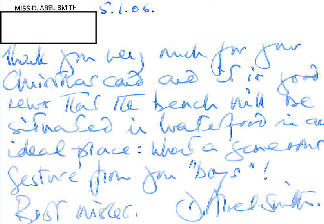 MISS D. ABEL SMITH
5.1.06.
Thank you very much for your
Christmas card and it is good
news that the bench will be
situated in Waterford in an
ideal place: what a generous
gesture from you "boys"!
Best wishes. D. Abel Smith.